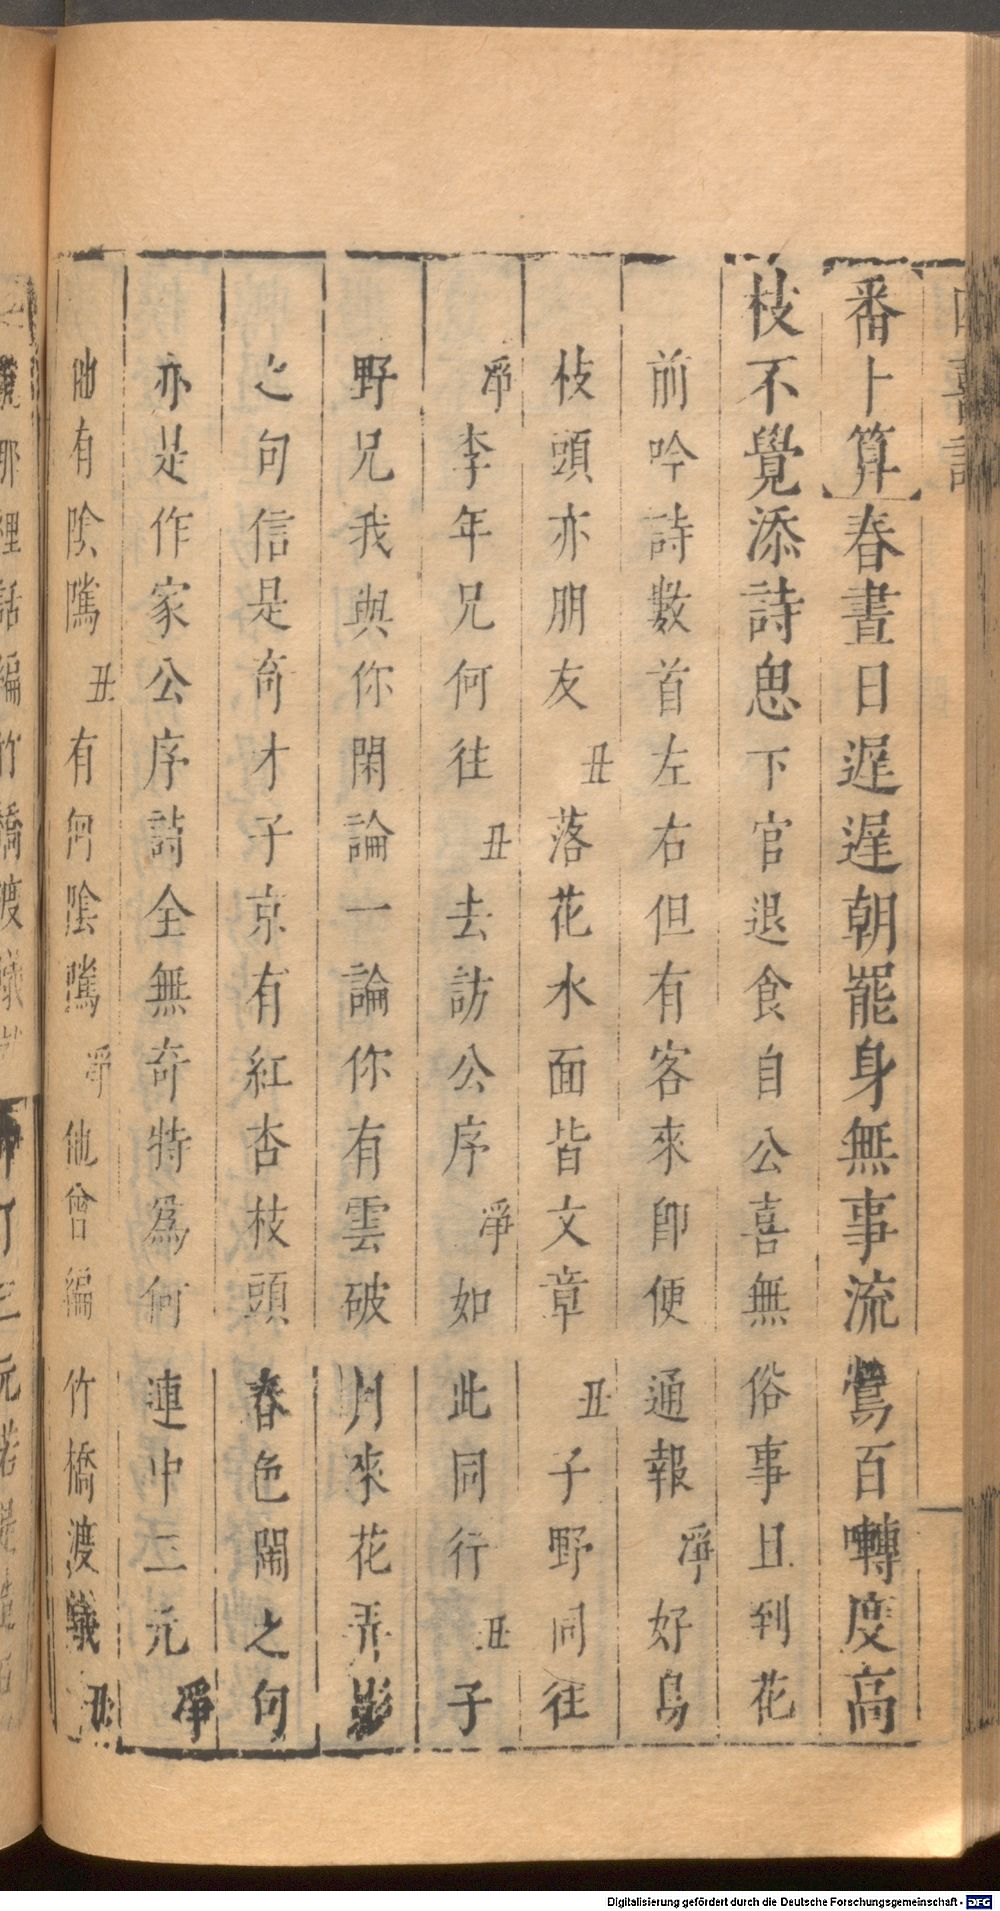 番卜算春晝日遲遲朝罷身無事流鶯百囀度高
枝不覺添詩思下官退食自公喜無俗事且到花
前吟詩數首左右但有客來即便通報淨好鳥
枝頭亦朋友丑落花水面皆文章丑子野同往
淨李年兄何往丑去訪公序淨如此同行丑子
野兄我與你閑論一論你有雲破月來花弄影
之句信是奇才子京有紅杏枝頭春色鬧之句
亦是作家公序詩全無奇特為何連中二元淨
他有陰隲丑有何陰隲淨他曾編竹橋渡蟻丑
Digitalisierung gefördert durch die Deutsche Forschungsgemeinschaft - DFG